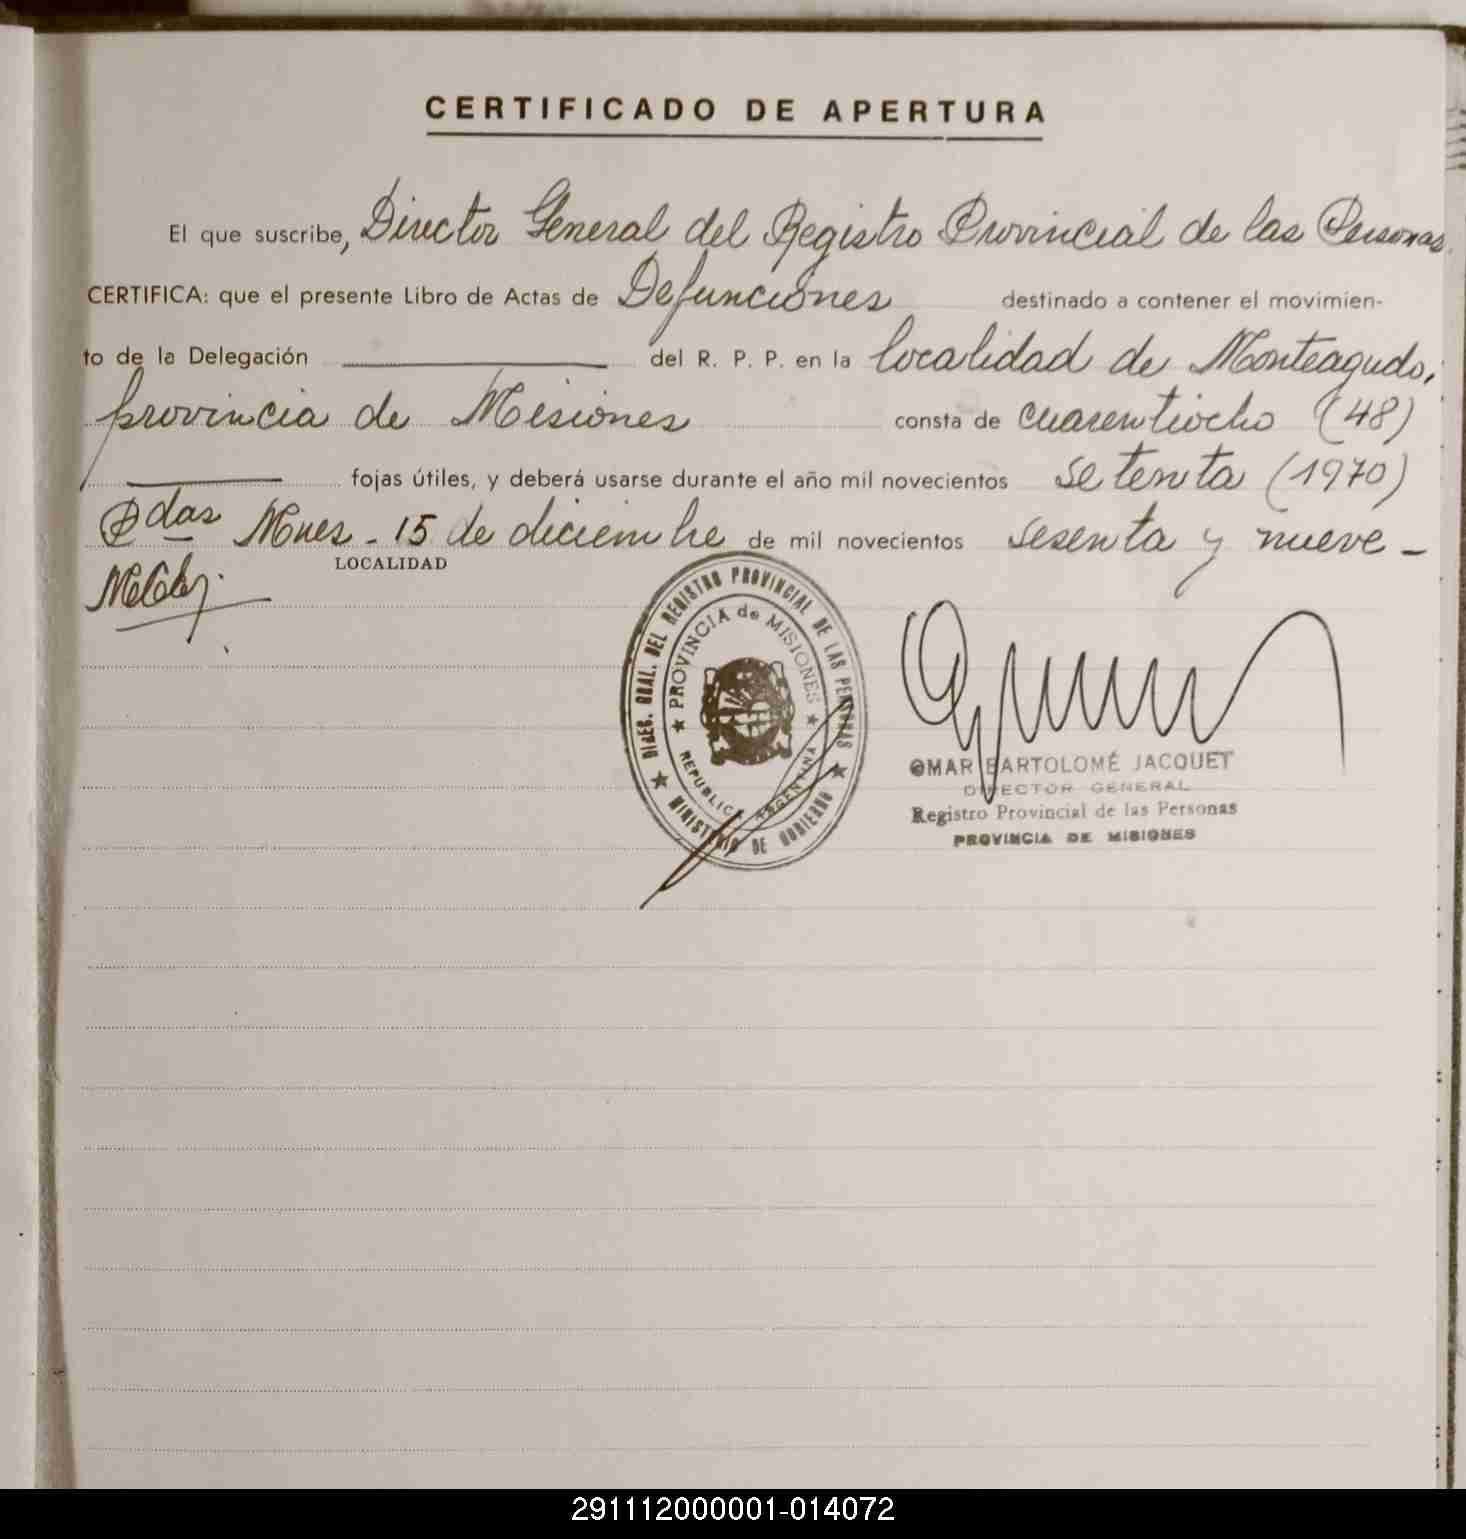 CERTIFICADO DE APERTURA
El que suscribe, Director General del Registro Provincial de las Personas.
CERTIFICA: que el presente Libro de Actas de Defunciones destinado a contener el movimien-
to de la Delegación del R. P. P. en la localidad de Monteagudo,
provincia de Misiones consta de cuarentiocho (48)
fojas útiles, y deberá usarse durante el año mil novecientos setenta (1970)
Pdas Mnes - 15 de diciembre de mil novecientos sesenta y nueve -
LOCALIDAD
DIREC. GRAL. DEL REGISTRO PROVINCIAL DE LAS PERSONAS
★ MINISTERIO DE GOBIERNO ★
★ PROVINCIA de MISIONES ★
REPUBLICA ARGENTINA
OMAR BARTOLOMÉ JACQUET
DIRECTOR GENERAL
Registro Provincial de las Personas
PROVINCIA DE MISIONES
291112000001-014072